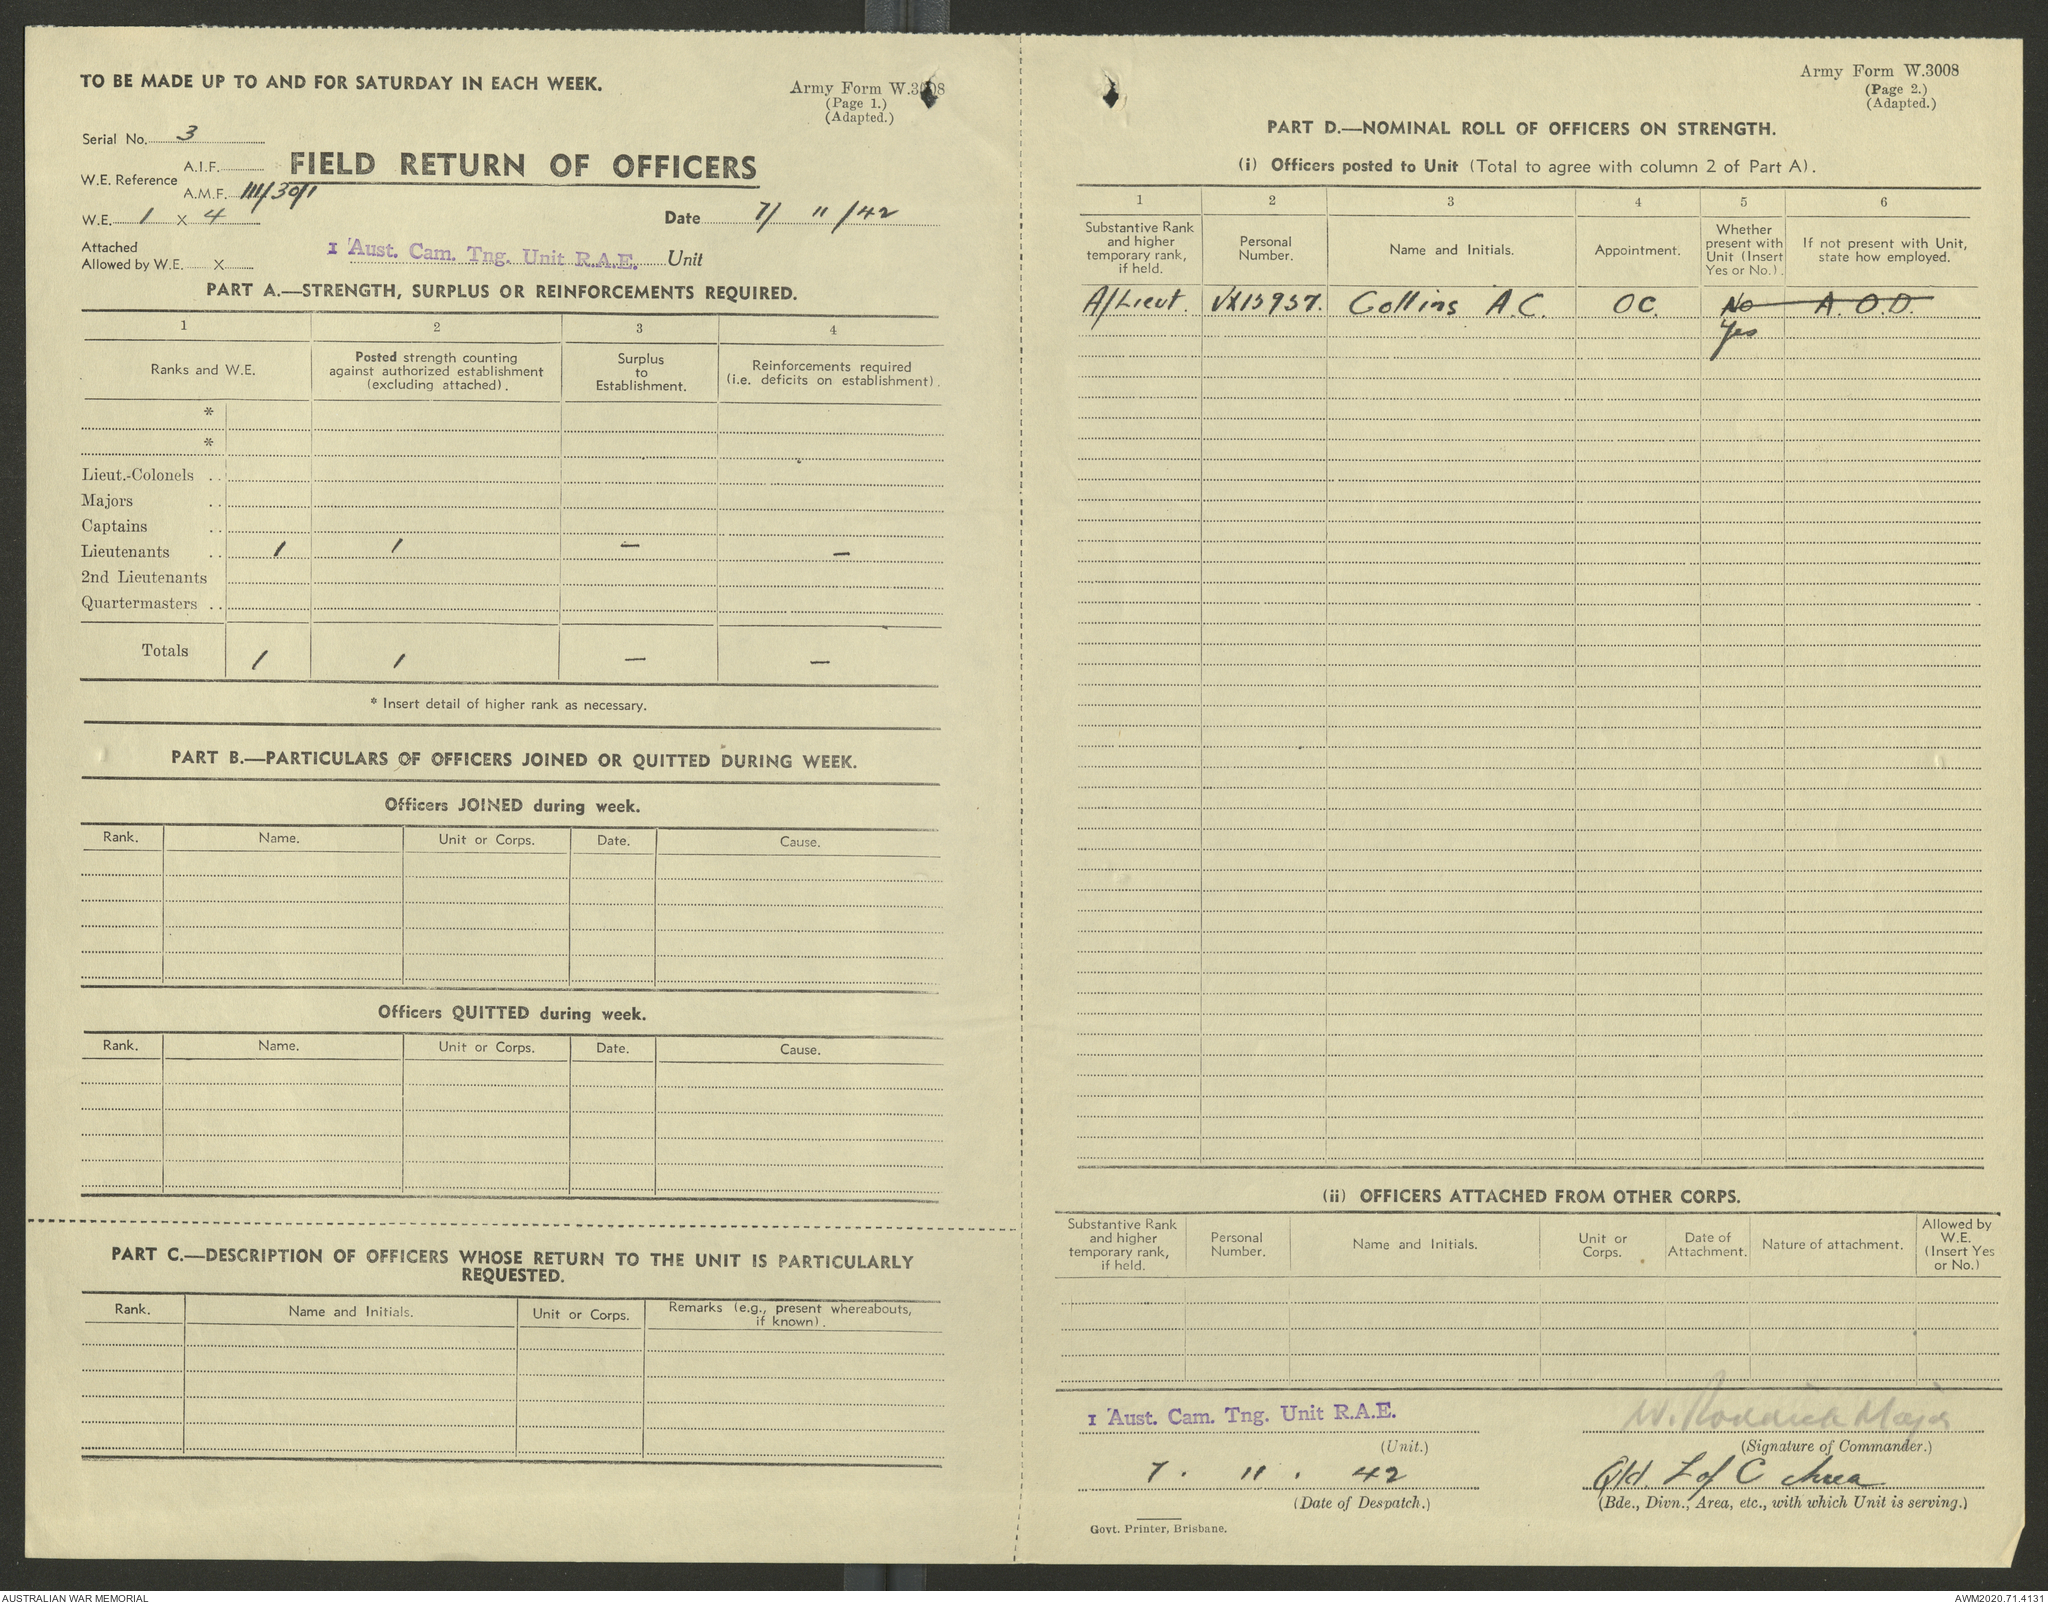 TO BE MADE UP TO AND FOR SATURDAY IN EACH WEEK.
Army Form W.3008
(Page 1.)
(Adapted.)
Serial No. 3
A.I.F.
W.E. Reference
A.M.F. III/30/1
FIELD RETURN OF OFFICERS
W.E. 1 X 4
Date 7/ 11 /42
Attached
Allowed by W.E. X
1 Aust. Cam. Tng. Unit R.A.E. Unit
PART A.—STRENGTH, SURPLUS OR REINFORCEMENTS REQUIRED.
1 2 3 4
Ranks and W.E.
Posted strength counting
against authorized establishment
(excluding attached).
Surplus
to
Establishment.
Reinforcements required
(i.e. deficits on establishment).
*
*
Lieut.-Colonels ..
Majors ..
Captains ..
Lieutenants .. 1 1 — —
2nd Lieutenants
Quartermasters ..
Totals 1 1 — —
* Insert detail of higher rank as necessary.
PART B.—PARTICULARS OF OFFICERS JOINED OR QUITTED DURING WEEK.
Officers JOINED during week.
Rank. Name. Unit or Corps. Date. Cause.
Officers QUITTED during week.
Rank. Name. Unit or Corps. Date. Cause.
PART C.—DESCRIPTION OF OFFICERS WHOSE RETURN TO THE UNIT IS PARTICULARLY
REQUESTED.
Rank. Name and Initials. Unit or Corps. Remarks (e.g., present whereabouts,
if known).
Army Form W.3008
(Page 2.)
(Adapted.)
PART D.—NOMINAL ROLL OF OFFICERS ON STRENGTH.
(i) Officers posted to Unit (Total to agree with column 2 of Part A).
1 2 3 4 5 6
Substantive Rank
and higher
temporary rank,
if held.
Personal
Number.
Name and Initials.
Appointment.
Whether
present with
Unit (Insert
Yes or No.).
If not present with Unit,
state how employed.
A/Lieut. VX15937. Collins A.C. OC. No A.O.D.
Yes
(ii) OFFICERS ATTACHED FROM OTHER CORPS.
Substantive Rank
and higher
temporary rank,
if held.
Personal
Number.
Name and Initials.
Unit or
Corps.
Date of
Attachment.
Nature of attachment.
Allowed by
W.E.
(Insert Yes
or No.)
1 Aust. Cam. Tng. Unit R.A.E.
(Unit.)
W. Major
(Signature of Commander.)
7. 11. 42
(Date of Despatch.)
Qld. L of C Area
(Bde., Divn., Area, etc., with which Unit is serving.)
Govt. Printer, Brisbane.
AUSTRALIAN WAR MEMORIAL
AWM2020.71.4131